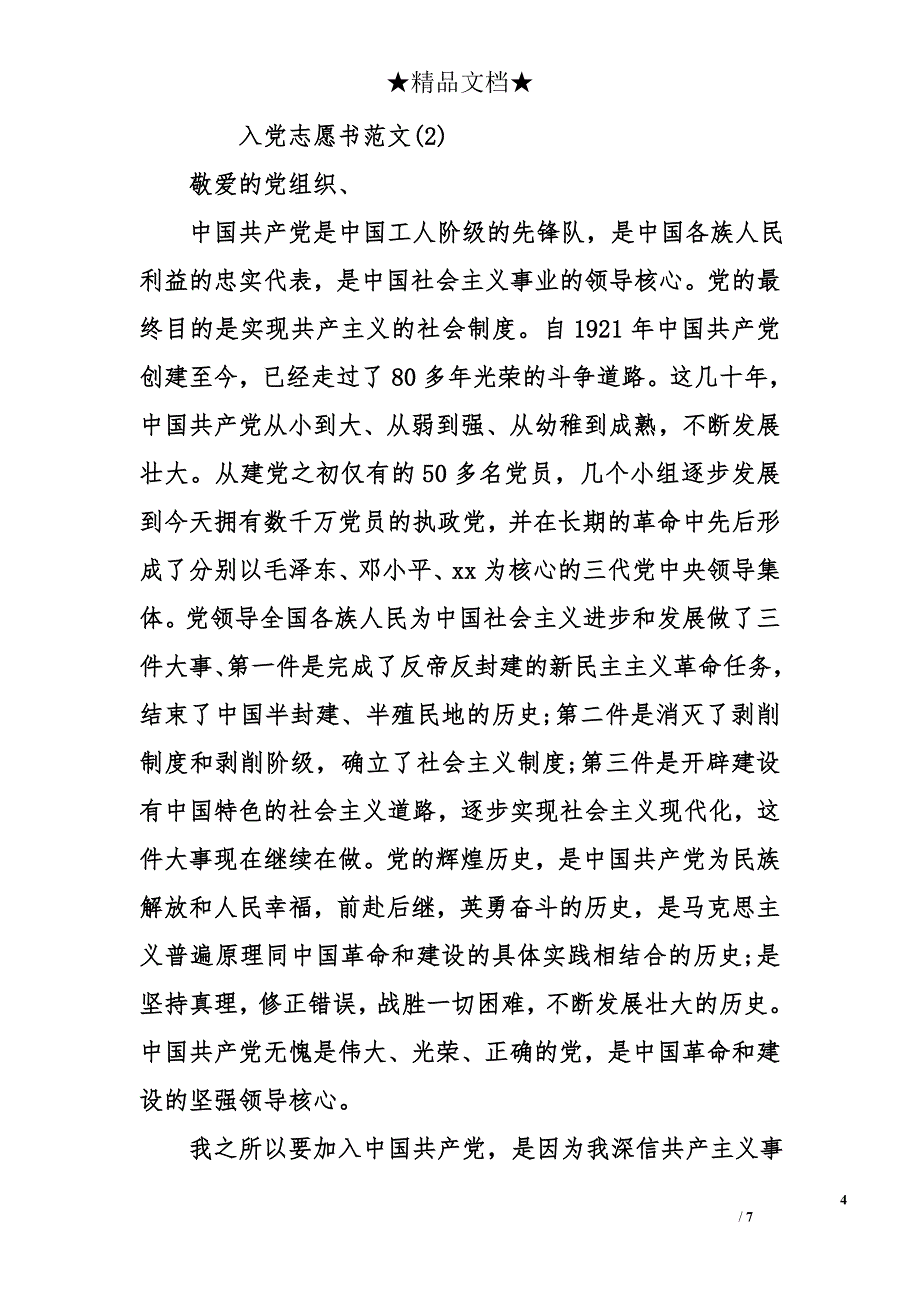 ★精品文档★
入党志愿书范文(2)
敬爱的党组织、
中国共产党是中国工人阶级的先锋队，是中国各族人民
利益的忠实代表，是中国社会主义事业的领导核心。党的最
终目的是实现共产主义的社会制度。自 1921 年中国共产党
创建至今，已经走过了 80 多年光荣的斗争道路。这几十年，
中国共产党从小到大、从弱到强、从幼稚到成熟，不断发展
壮大。从建党之初仅有的 50 多名党员，几个小组逐步发展
到今天拥有数千万党员的执政党，并在长期的革命中先后形
成了分别以毛泽东、邓小平、xx 为核心的三代党中央领导集
体。党领导全国各族人民为中国社会主义进步和发展做了三
件大事、第一件是完成了反帝反封建的新民主主义革命任务，
结束了中国半封建、半殖民地的历史;第二件是消灭了剥削
制度和剥削阶级，确立了社会主义制度;第三件是开辟建设
有中国特色的社会主义道路，逐步实现社会主义现代化，这
件大事现在继续在做。党的辉煌历史，是中国共产党为民族
解放和人民幸福，前赴后继，英勇奋斗的历史，是马克思主
义普遍原理同中国革命和建设的具体实践相结合的历史;是
坚持真理，修正错误，战胜一切困难，不断发展壮大的历史。
中国共产党无愧是伟大、光荣、正确的党，是中国革命和建
设的坚强领导核心。
我之所以要加入中国共产党，是因为我深信共产主义事
4
/ 7